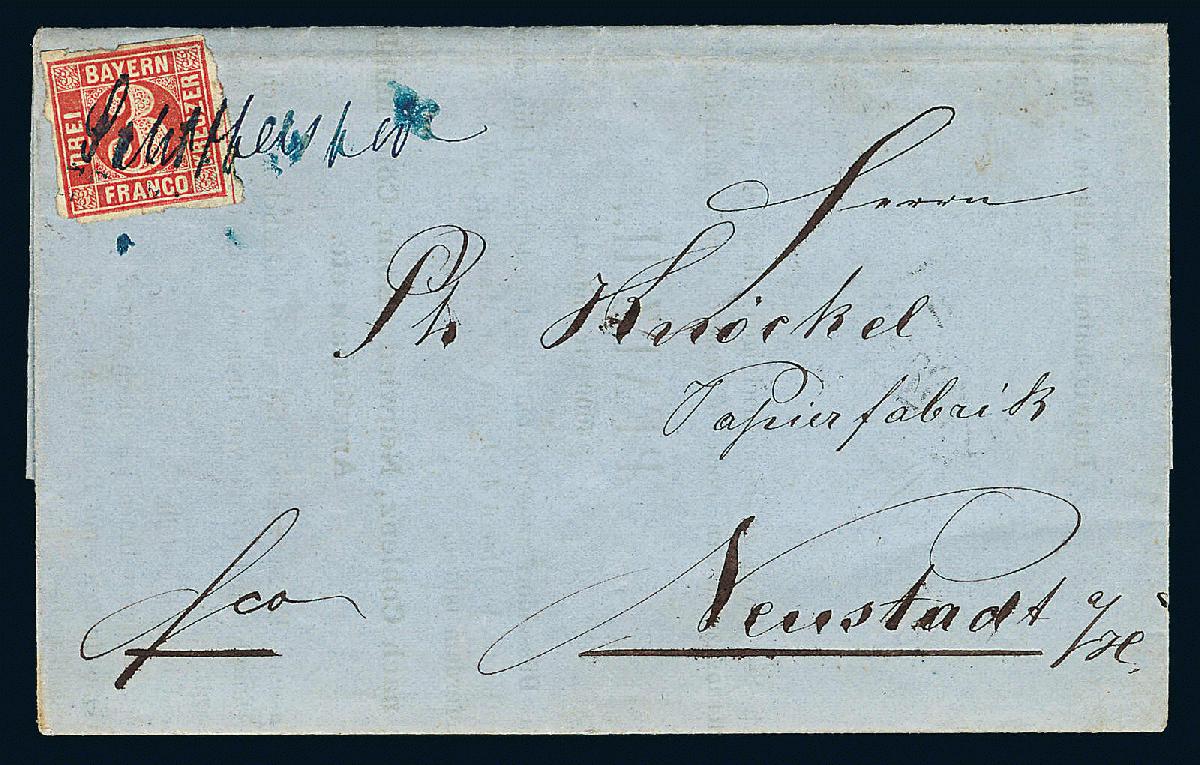 BAYERN
DREI
KREUZER
FRANCO
3
Herrn
Ph Knöckel
Papierfabrik
fco
Neustadt a/H.